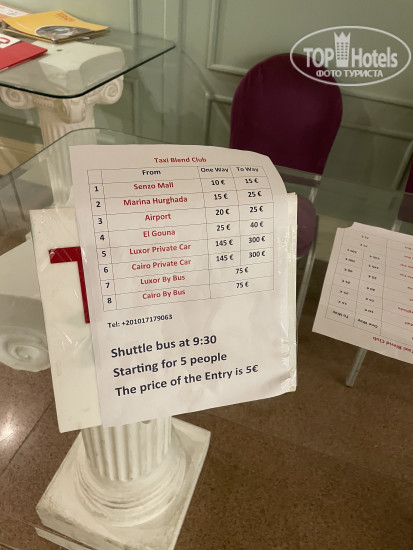 TOP Hotels
ФОТО ТУРИСТА
Taxi Blend Club
From One Way To Way
1 Senzo Mall 10 € 15 €
2 Marina Hurghada 15 € 25 €
3 Airport 20 € 25 €
4 El Gouna 25 € 40 €
5 Luxor Private Car 145 € 300 €
6 Cairo Private Car 145 € 300 €
7 Luxor By Bus 75 €
8 Cairo By Bus 75 €
Tel: +201017179063
Shuttle bus at 9:30
Starting for 5 people
The price of the Entry is 5€